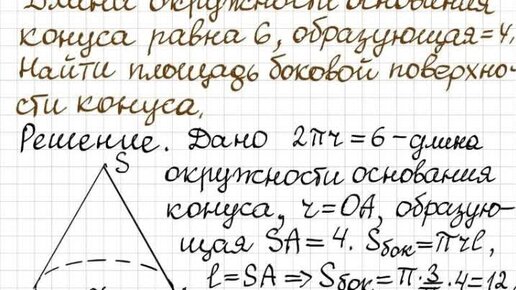 Длина окружности основания
конуса равна 6, образующая=4.
Найти площадь боковой поверхно-
сти конуса.
Решение. Дано 2πr=6-длина
S
окружности основания
конуса, r=OA, образую-
щая SA=4. Sбок=πrl,
l=SA⇒Sбок=π·3/π·4=12